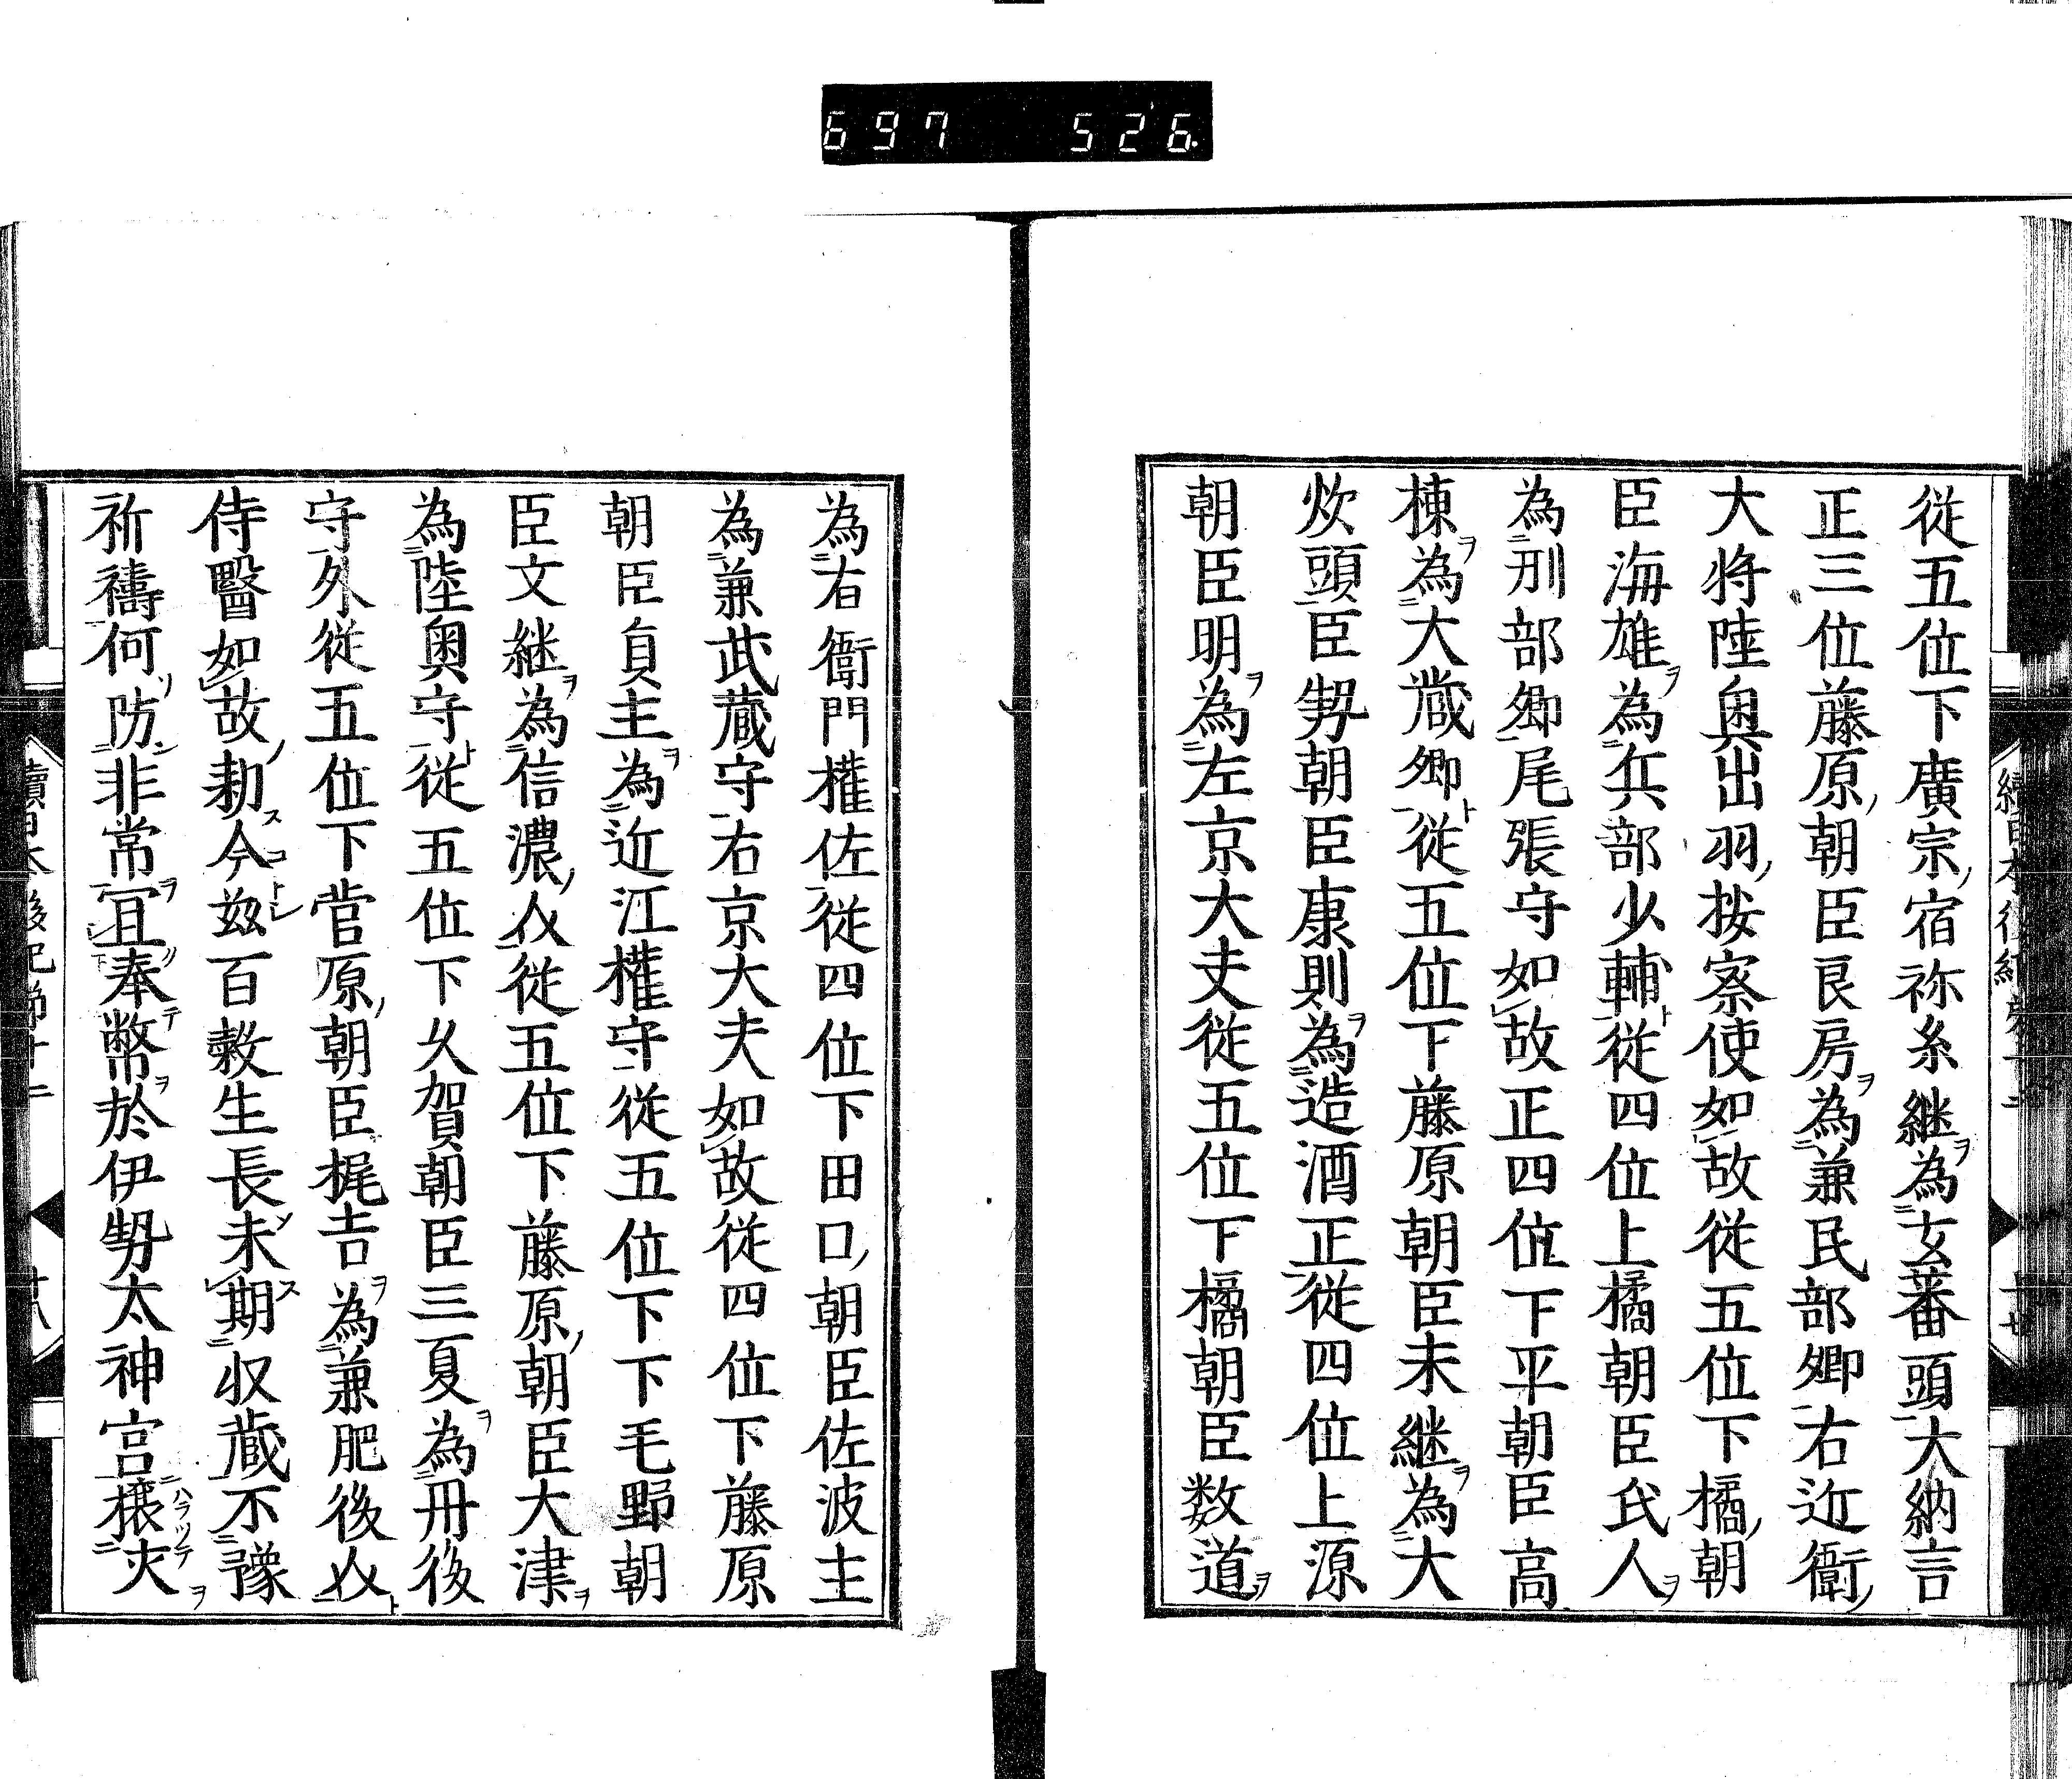 697 526
從五位下廣宗宿祢糸継為玄蕃頭大納言
正三位藤原朝臣良房為兼民部卿右近衛
大将陸奥出羽按察使如故從五位下橘朝
臣海雄為兵部少輔從四位上橘朝臣氏人
為刑部卿尾張守如故正四位下平朝臣高
棟為大蔵卿從五位下藤原朝臣末継為大
炊頭臣勢朝臣康則為造酒正從四位上源
朝臣明為左京大夫從五位下橘朝臣数道
為右衛門権佐從四位下田口朝臣佐波主
為兼武蔵守右京大夫如故從四位下藤原
朝臣貞主為近江權守從五位下下毛野朝
臣文継為信濃介從五位下藤原朝臣大津
為陸奥守從五位下久賀朝臣三夏為丹後
守外從五位下菅原朝臣梶吉為兼肥後介
侍醫如故勅今茲百穀生長未期収蔵不豫
祈禱何防非常宜奉幣於伊勢太神宮攘災